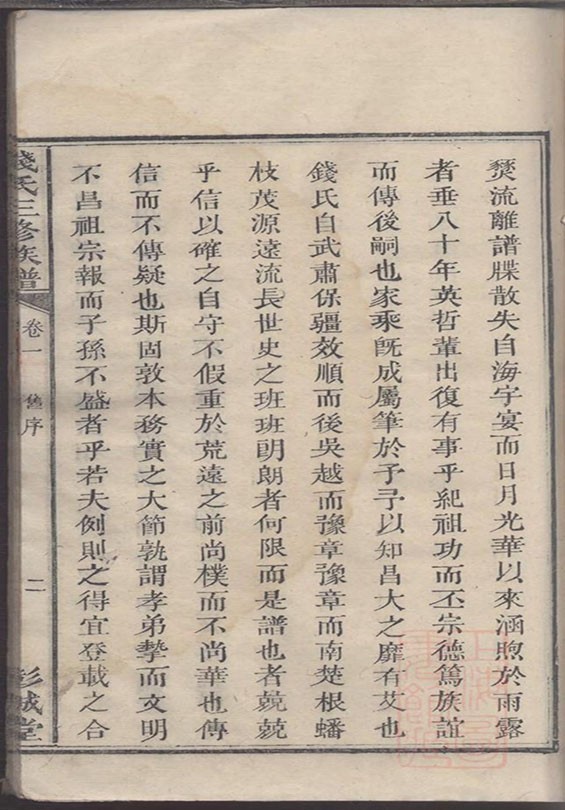 燹流離譜牒散失自海宇宴而日月光華以來涵煦於雨露
者垂八十年英哲輩出復有事乎紀祖功而丕宗德篤族誼
而傳後嗣也家乘旣成屬筆於予予以知昌大之靡有艾也
錢氏自武肅保疆效順而後吳越而豫章豫章而南楚根蟠
枝茂源遠流長世史之班班朗朗者何限而是譜也者兢兢
乎信以確之自守不假重於荒遠之前尚樸而不尚華也傳
信而不傳疑也斯固敦本務實之大節孰謂孝弟摯而文明
不昌祖宗報而子孫不盛者乎若夫例則之得宜登載之合
錢氏三修族譜
卷一
舊序
二
彭城堂